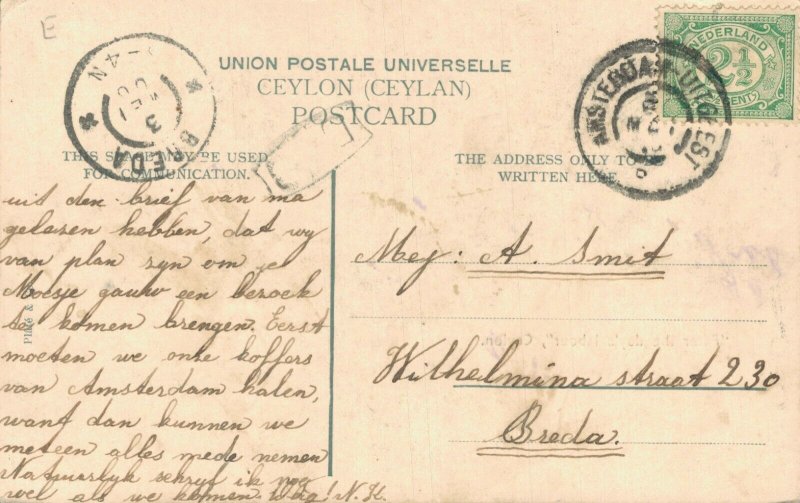 E
NEDERLAND
2½
CENT
AMSTERDAM-UITGEEST
BREDA
3
4-N
UNION POSTALE UNIVERSELLE
CEYLON (CEYLAN)
POSTCARD
THIS SPACE MAY BE USED
FOR COMMUNICATION.
THE ADDRESS ONLY TO
WRITTEN HERE
uit den brief van ma
gelezen hebben, dat wy
van plan zyn om je
Moesje gauw een bezoek
te komen brengen. Eerst
moeten we onze koffers
van Amsterdam halen,
want dan kunnen we
meteen alles mede nemen
Natuurlyk schryf ik nog
wel als we komen. Dag! N. K.
Plâté &
Mej: A. Smit
Wilhelmina straat 230
Breda.